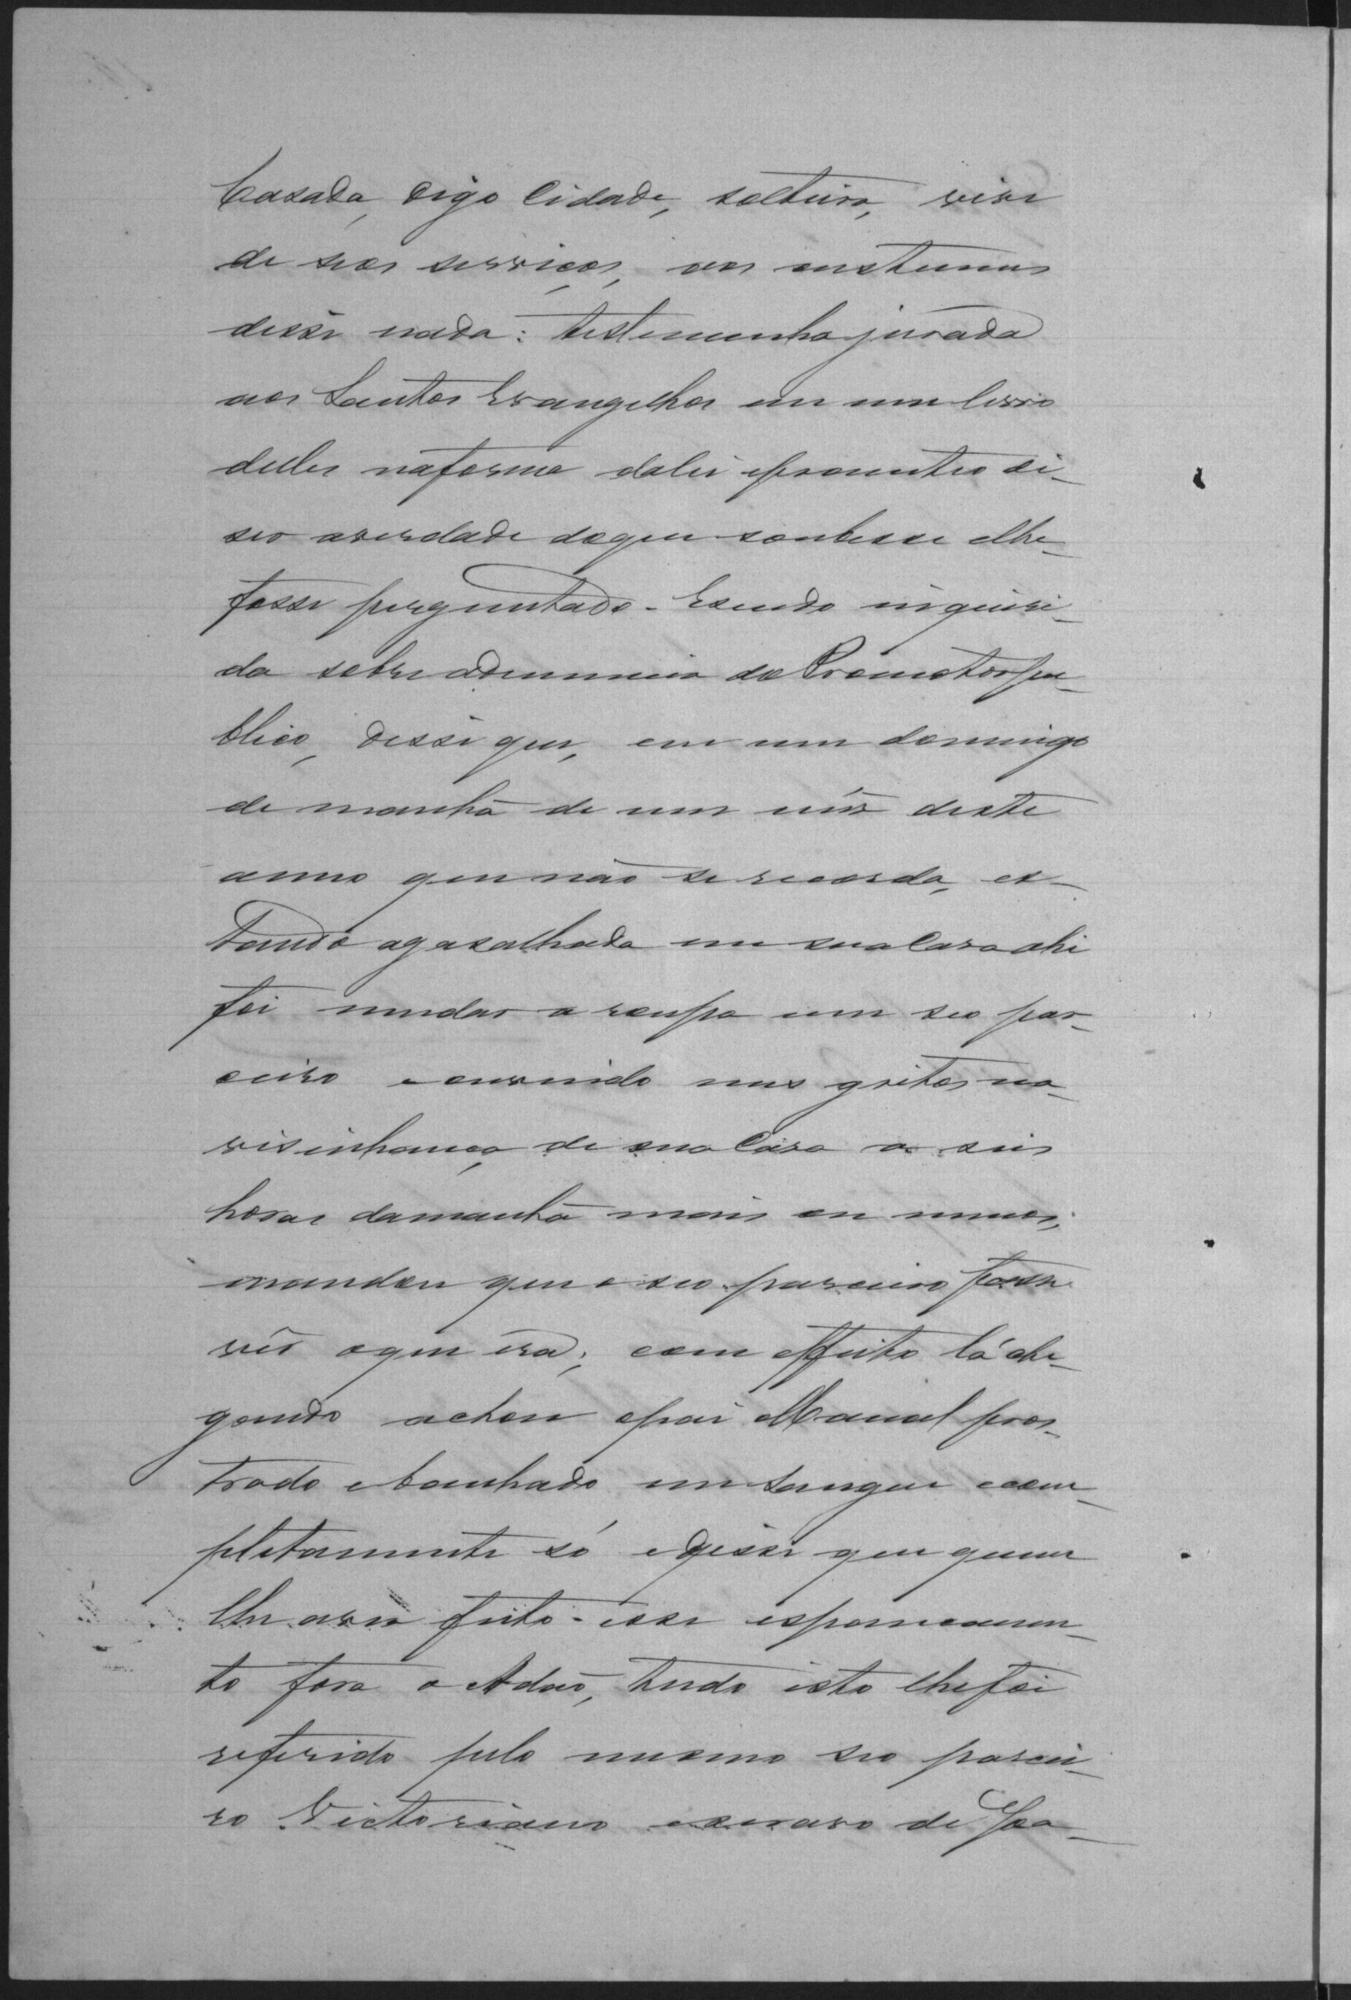 Casada, digo Cidade, solteira, vive
de seos serviços, aos custumes
disse nada: testemunha jurada
aos Santos Evangelhos em um livro
delles naforma dalei eprometteo di-
ser averdade doque soubesse elhe-
fosse perguntado. Esendo inqueri-
da sobre adenuncia do Promotor pu-
blico, disse que, em um domingo
de manhã de um mês deste
anno que não se recorda, es-
tando agasalhada em sua Casa ahi
foi mudar a roupa um seo par-
ceiro eouvindo uns gritos na-
visinhança de sua Casa as seis
horas damanhã mais ou menos,
mandou que o seo parceiro fosse
vêr oque era; com effeito lá che-
gando achou opai Manoel pros-
trado ebanhado em Sangue ecom-
pletamente só edisse que quem
lhe avia feito esse espancamen-
to fora o Adão, tudo isto lhe foi
referido pelo mesmo seo parcei-
ro Victoriano escravo de Joa-